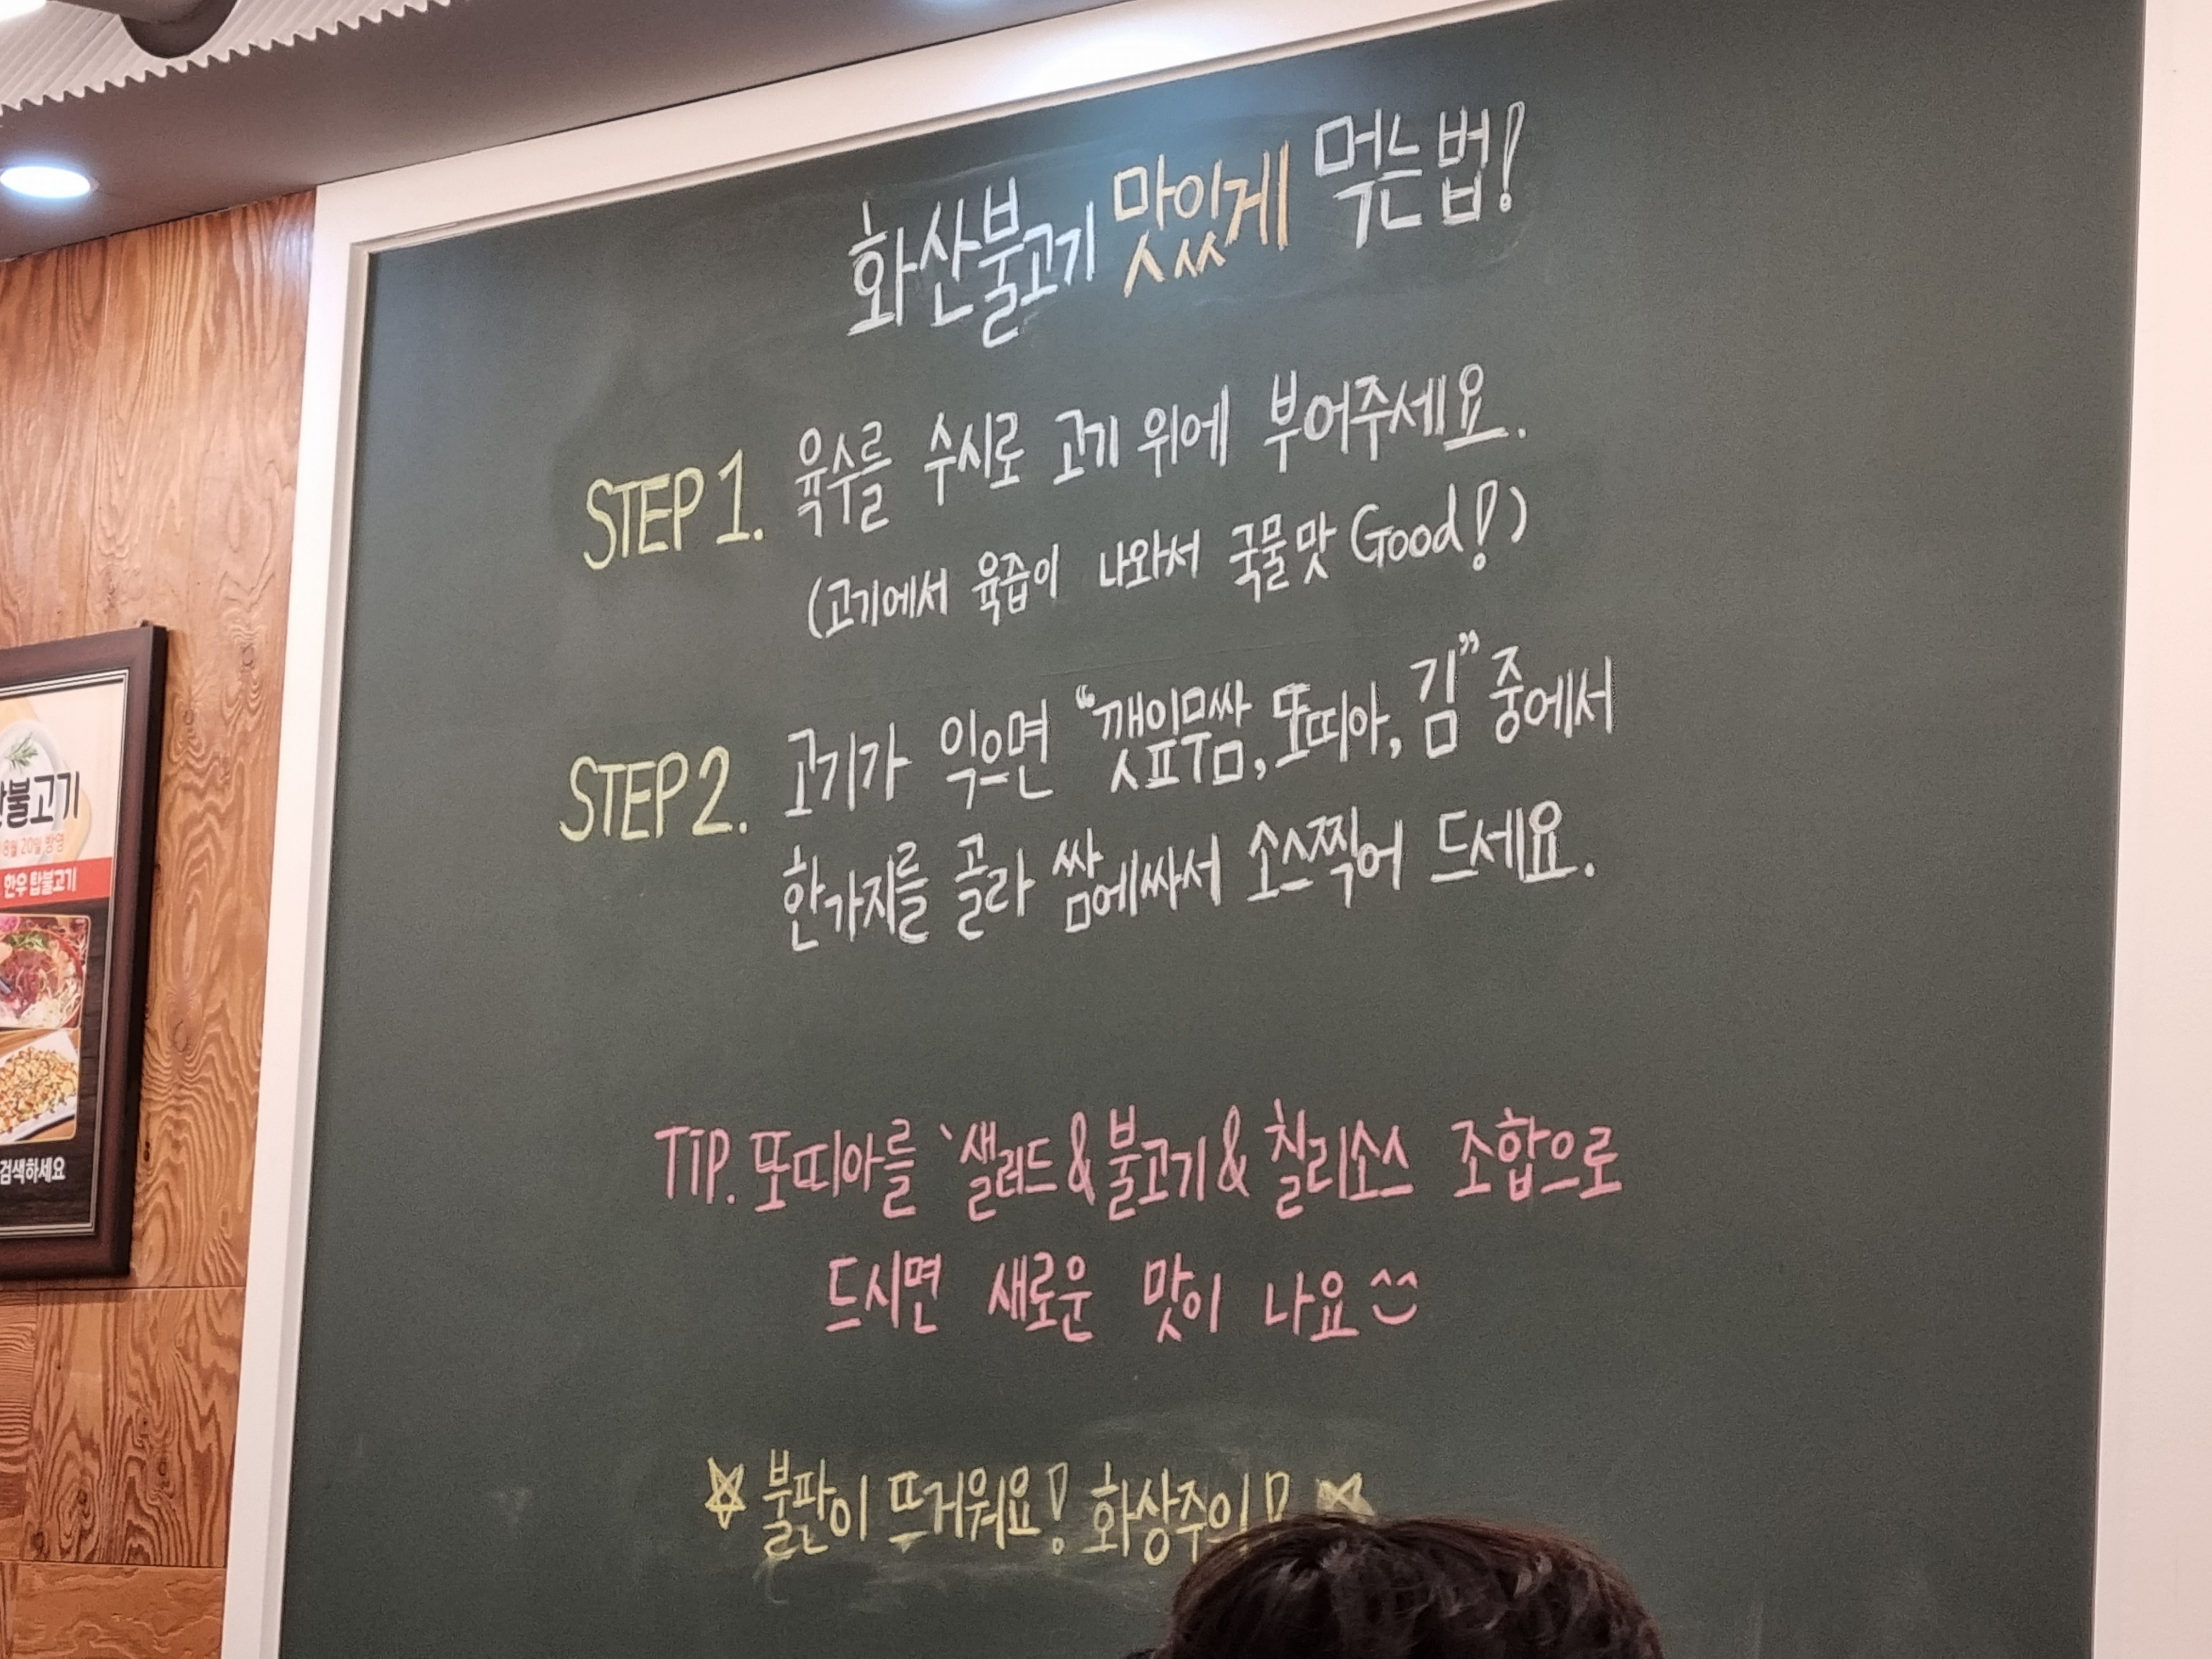 화산불고기 맛있게 먹는법!
STEP 1. 육수를 수시로 고기 위에 부어주세요.
(고기에서 육즙이 나와서 국물맛 Good!)
STEP 2. 고기가 익으면 “깻잎무쌈, 또띠아, 김” 중에서
한가지를 골라 쌈에싸서 소스찍어 드세요.
TIP. 또띠아를 '샐러드&불고기&칠리소스 조합으로
드시면 새로운 맛이 나요^^
☆ 불판이 뜨거워요! 화상주의! ☆
불고기
8월 20일 방영
한우 탑불고기
검색하세요